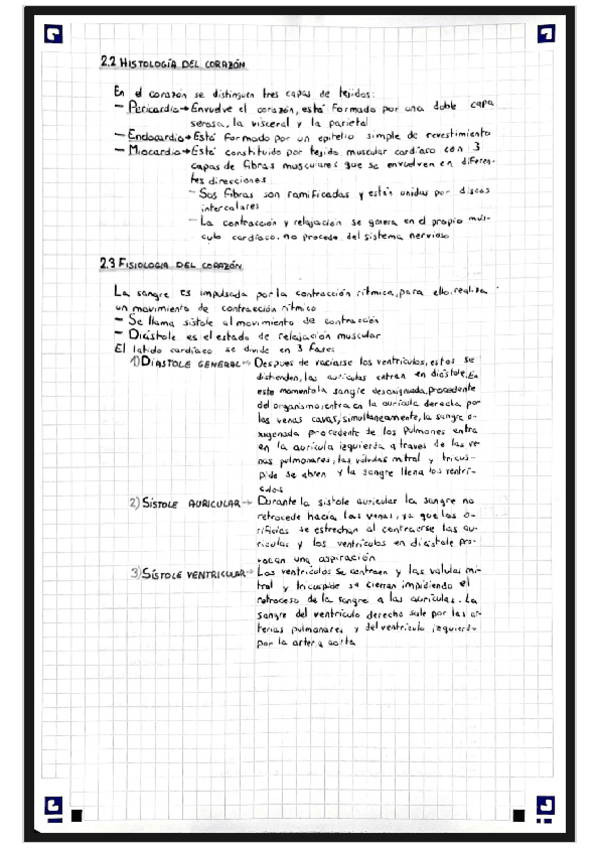 2.2 HISTOLOGÍA DEL CORAZÓN
En el corazón se distinguen tres capas de tejidos:
- Pericardio → Envuelve el corazón, está formado por una doble capa
serosa, la visceral y la parietal
- Endocardio → Está formado por un epitelio simple de revestimiento
- Miocardio → Está constituido por tejido muscular cardíaco con 3
capas de fibras musculares que se envuelven en diferen-
tes direcciones
- Sus fibras son ramificadas y están unidas por discos
intercalares
- La contracción y relajación se genera en el propio mús-
culo cardíaco. no procede del sistema nervioso
2.3 FISIOLOGIA DEL CORAZÓN
La sangre es impulsada por la contracción rítmica, para ello, realiza
un movimiento de contracción rítmico
- Se llama sístole al movimiento de contracción
- Diástole es el estado de relajación muscular
El latido cardíaco se divide en 3 fases
1) DIASTOLE GENERAL → Despues de vaciarse los ventrículos, estos se
distienden, las aurículas entran en diástole. En
este momento la sangre desoxigenada, procedente
del organismo, entra en la aurícula derecha por
las venas cavas, simultaneamente, la sangre o-
xigenada procedente de los pulmones entra
en la aurícula izquierda a traves de las ve-
nas pulmonares, las válvulas mitral y tricus-
pide se abren y la sangre llena los ventrí-
culos
2) SÍSTOLE AURICULAR → Durante la sistole auricular la sangre no
retrocede hacia las venas, ya que los o-
rificios se estrechan al contraerse las au-
riculas y los ventrículos en diástole pro-
vocan una aspiración
3) SÍSTOLE VENTRICULAR → Los ventrículos se contraen y las valulas mi-
tral y tricuspide se cierran impidiendo el
retroceso de la sangre a las aurículas. La
sangre del ventrículo derecho sale por las ar-
terias pulmonares y del ventrículo izquierdo
por la arteria aorta